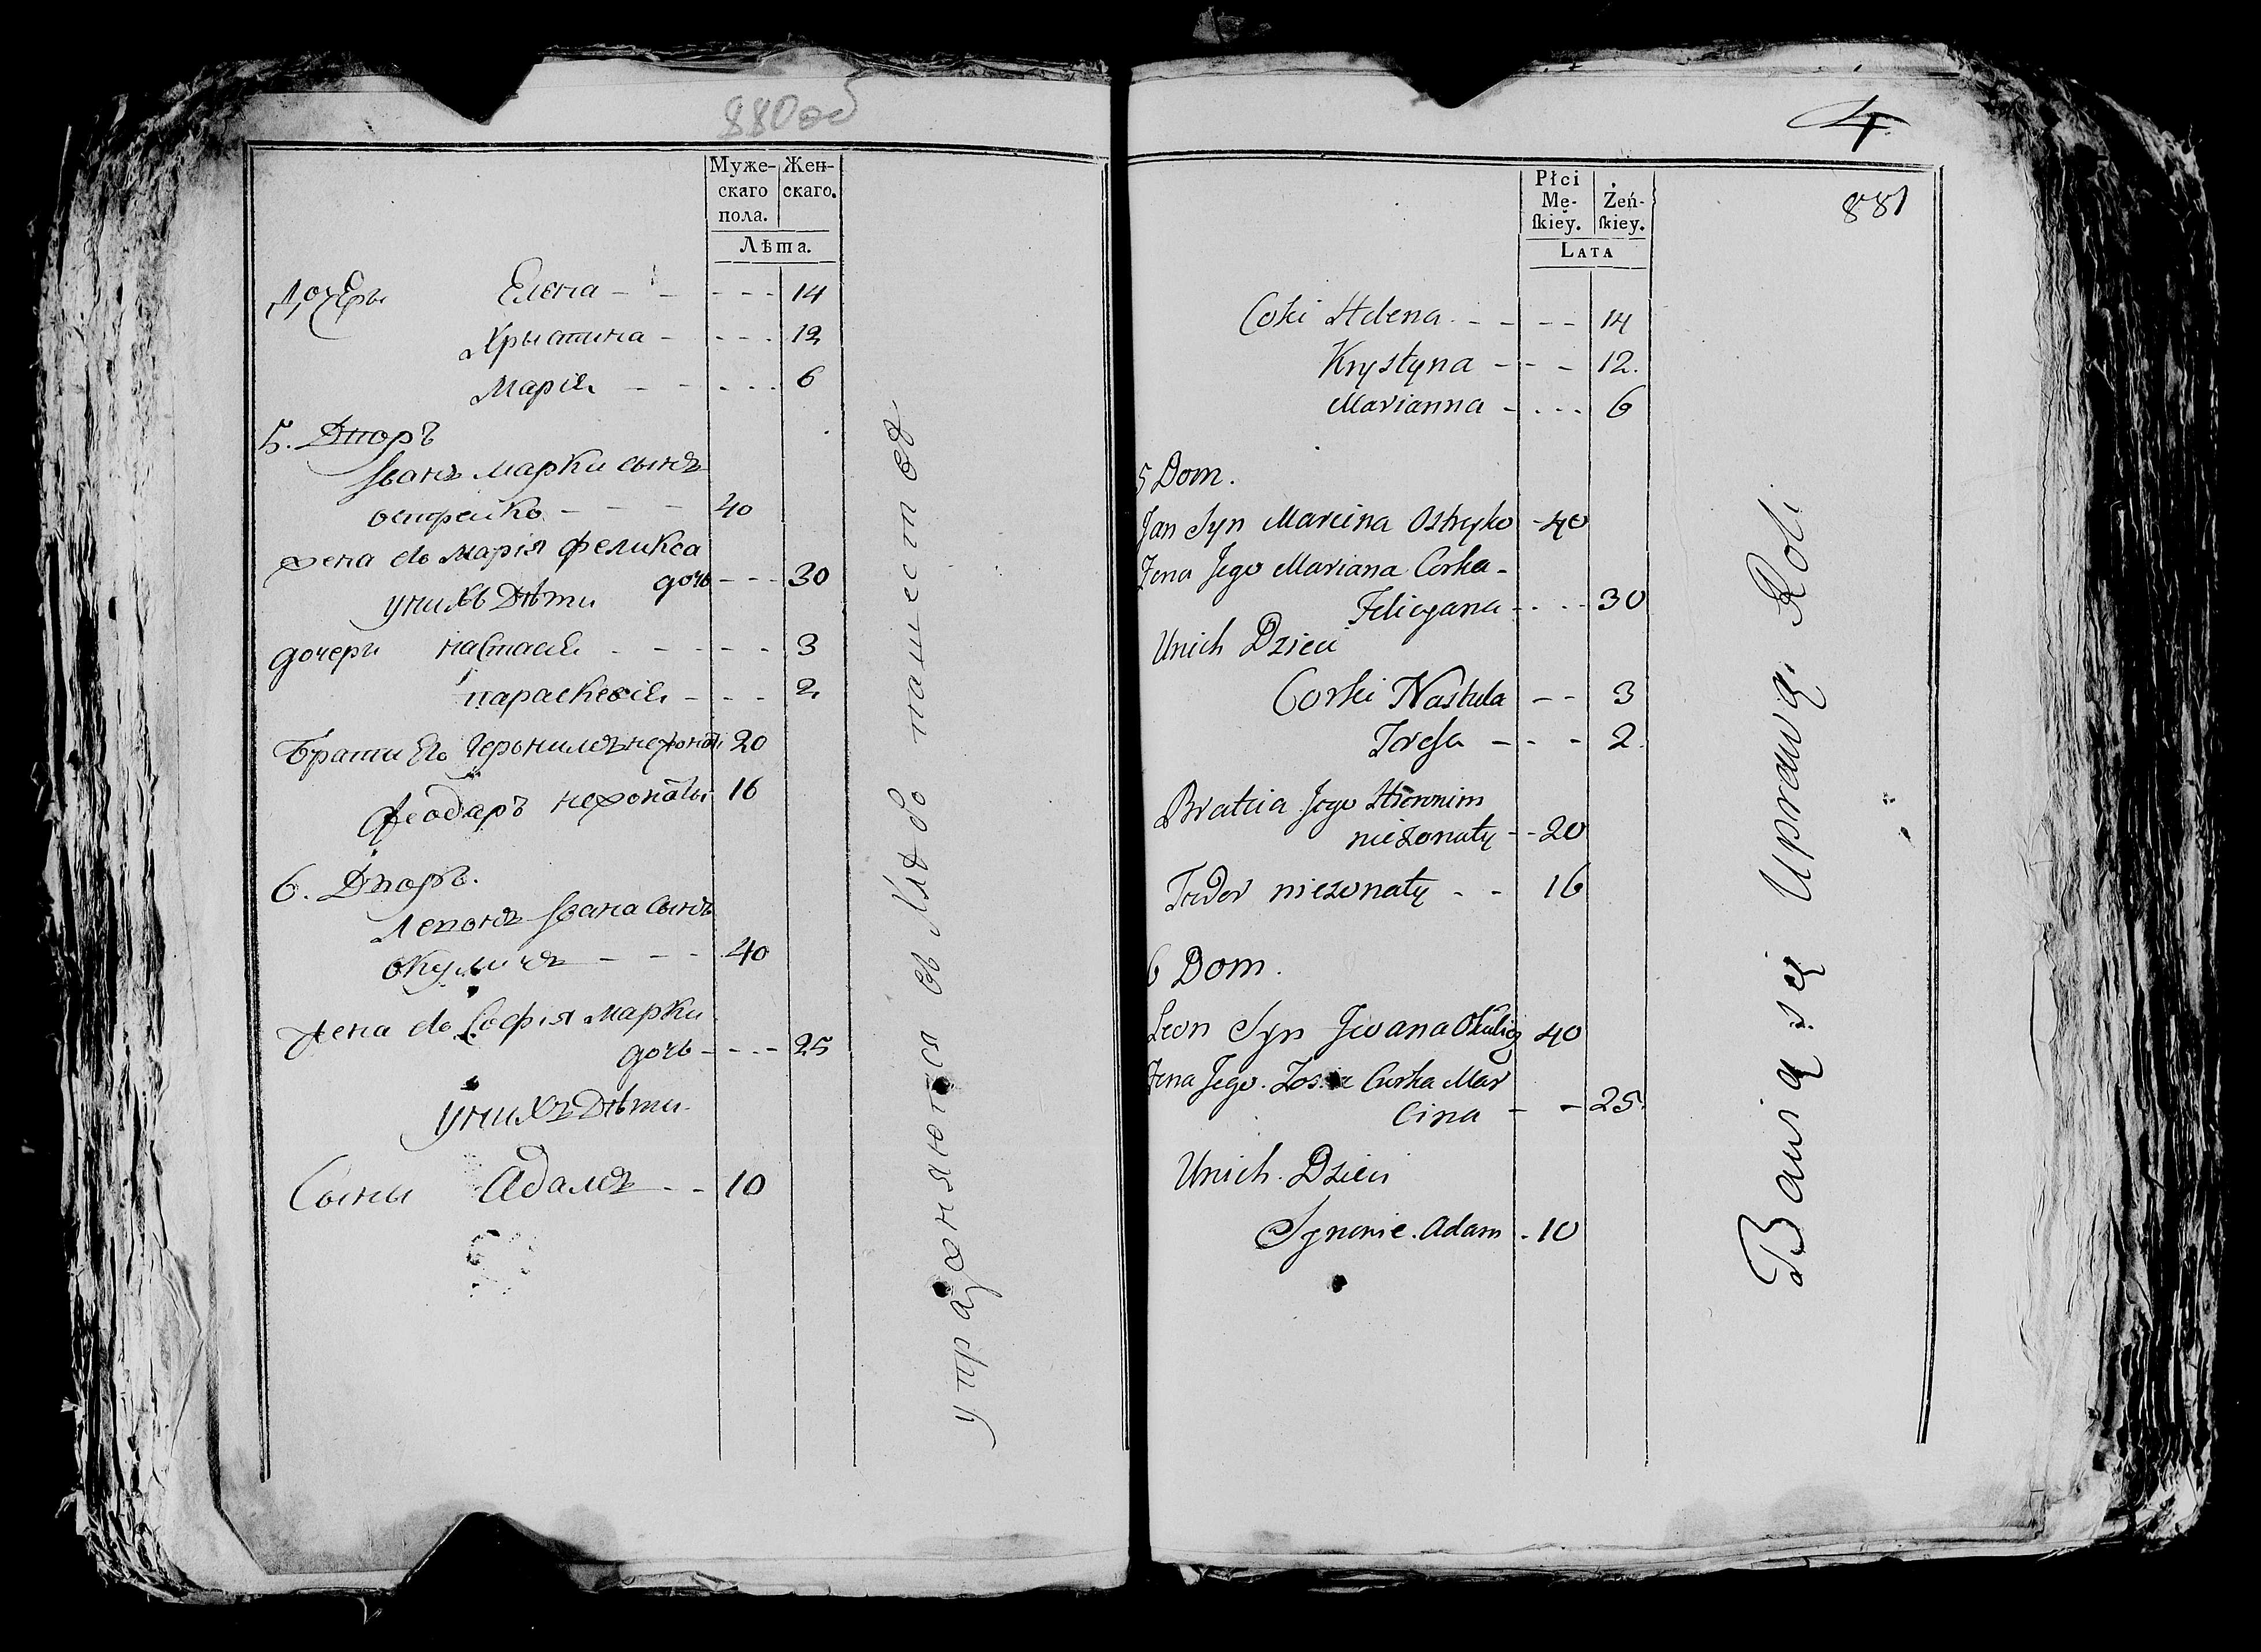 880об
Муже-
скаго
пола.
Жен-
скаго.
Лѣта.
Дочери Елена - - - - - 14
Хрыстина - - - - 12
Марія - - - - - 6
5. Дворъ
Іванъ марки сынъ
острейко - - - 40
жена его марія феликса
дочь - - - 30
у них дѣти
дочери настасія - - - - - 3
параскевія - - - 2
Брати его Иеронимъ нежонат. 20
Феодаръ нежонаты 16
6. Дворъ.
Леπонъ Івана сынъ
окуличъ - - - 40
жена его Софія марки
дочь - - - - 25
у них дѣти
Сыны Адамъ - - 10
упражняются в хлѣбопашествѣ
4
881
Płci
Mę-
ſkiey.
Żeń-
ſkiey.
LATA
Coki Helena - - - - 14
Krystyna - - - 12.
Marianna - - - - 6
5 Dom.
Jan Syn Marcina Ostreyko - 40
Żena Jego Mariana Corka -
Felicyana - - - 30
Unich Dzieci
Corki Nastula - - 3
Teresa - - - 2.
Bratcia Jego Hieronim
nieżonaty - - 20
Fudor niezonaty - - 16
6 Dom.
Leon Syn Jwana Okulicz 40
Żena Jego Zosia Curka Mar
cina - - 25.
Unich Dzieci
Synowie Adam . 10
Bawią się Uprawą Roli